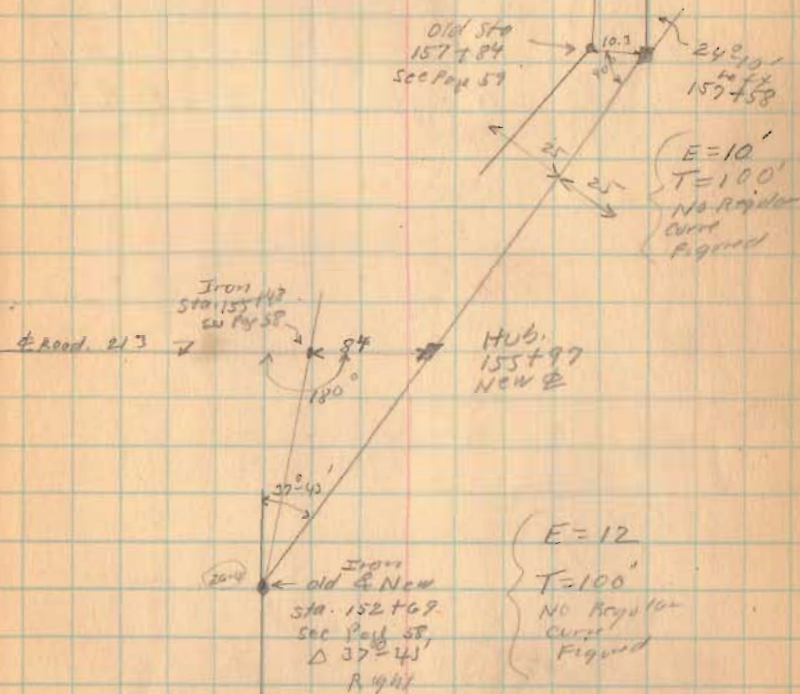 Old Sta
157+84
see Page 59
10.3
90°
24°-10'
157+58
25
25
E = 10'
T = 100'
No Regular
Curve
Figured
Iron
Sta. 155+48
see Pag 58
℄ Road. 213
84
180°
Hub.
155+97
New ℄
37°-43'
Iron
old & New
Sta. 152+69
see Page 58
Δ 37°-43'
Right
E = 12
T = 100'
No Regular
Curve
Figured